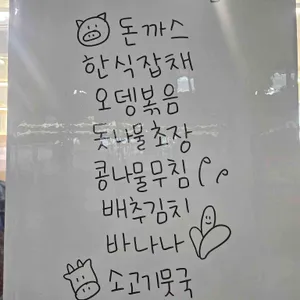 돈까스
한식잡채
오뎅볶음
돗나물초장
콩나물무침
배추김치
바나나
소고기뭇국